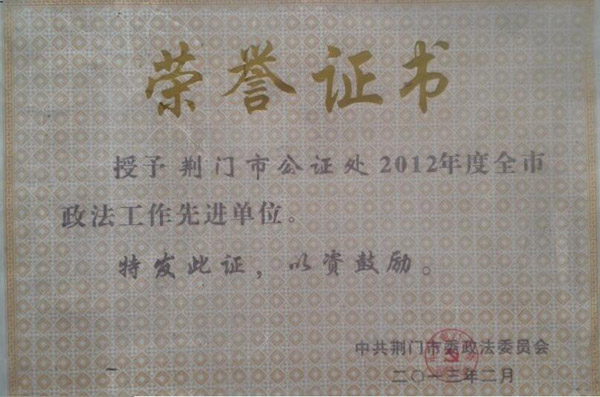 荣誉证书
授予荆门市公证处2012年度全市
政法工作先进单位。
特发此证，以资鼓励。
中共荆门市委政法委员会
二〇一三年二月